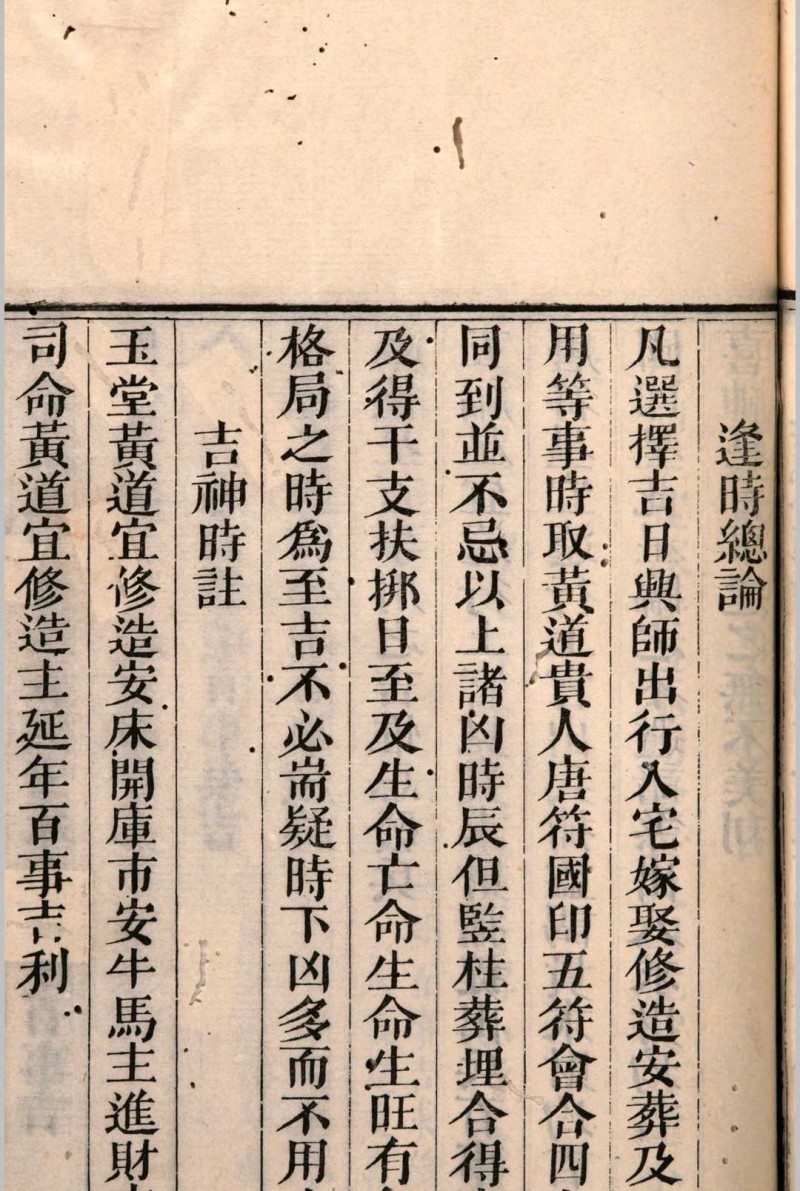 逢時總論
凡選擇吉日興師出行入宅嫁娶修造安葬及
用等事時取黃道貴人唐符國印五符會合四
同到並不忌以上諸凶時辰但監柱葬埋合得
及得干支扶挪日至及生命亡命生命生旺有
格局之時爲至吉不必耑疑時下凶多而不用
吉神時註
玉堂黃道宜修造安床開庫市安牛馬主進財
司命黃道宜修造主延年百事吉利